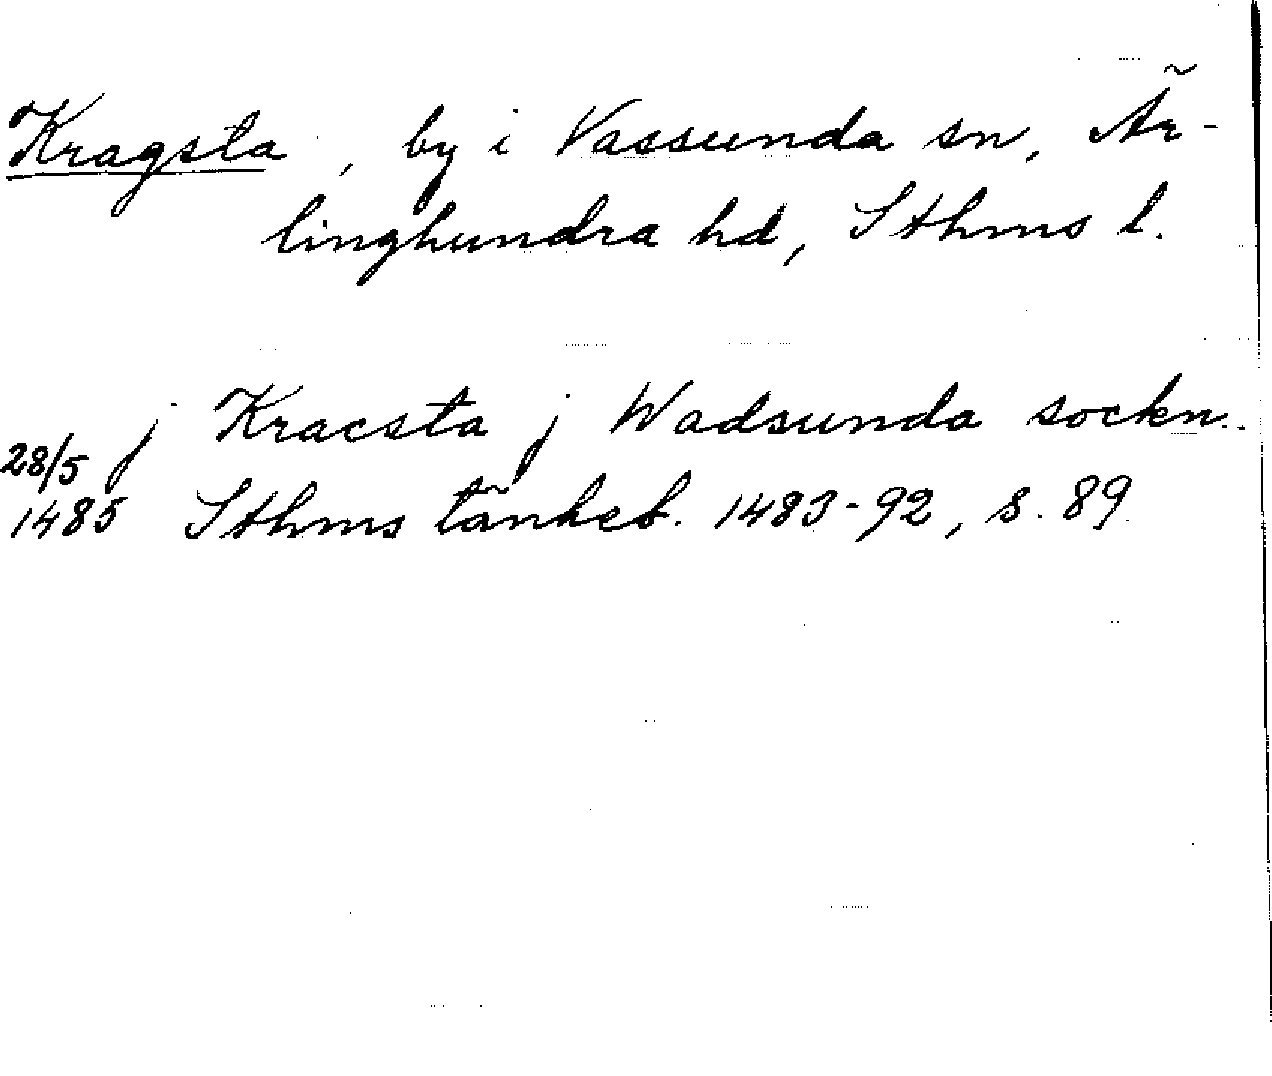 Kragsta, by i Vassunda sn, Är-
linghundra hd, Sthms l.
j Kracsta j Wadsunda sockn.
28/5
1485 Sthms tänkeb. 1483-92, s. 89